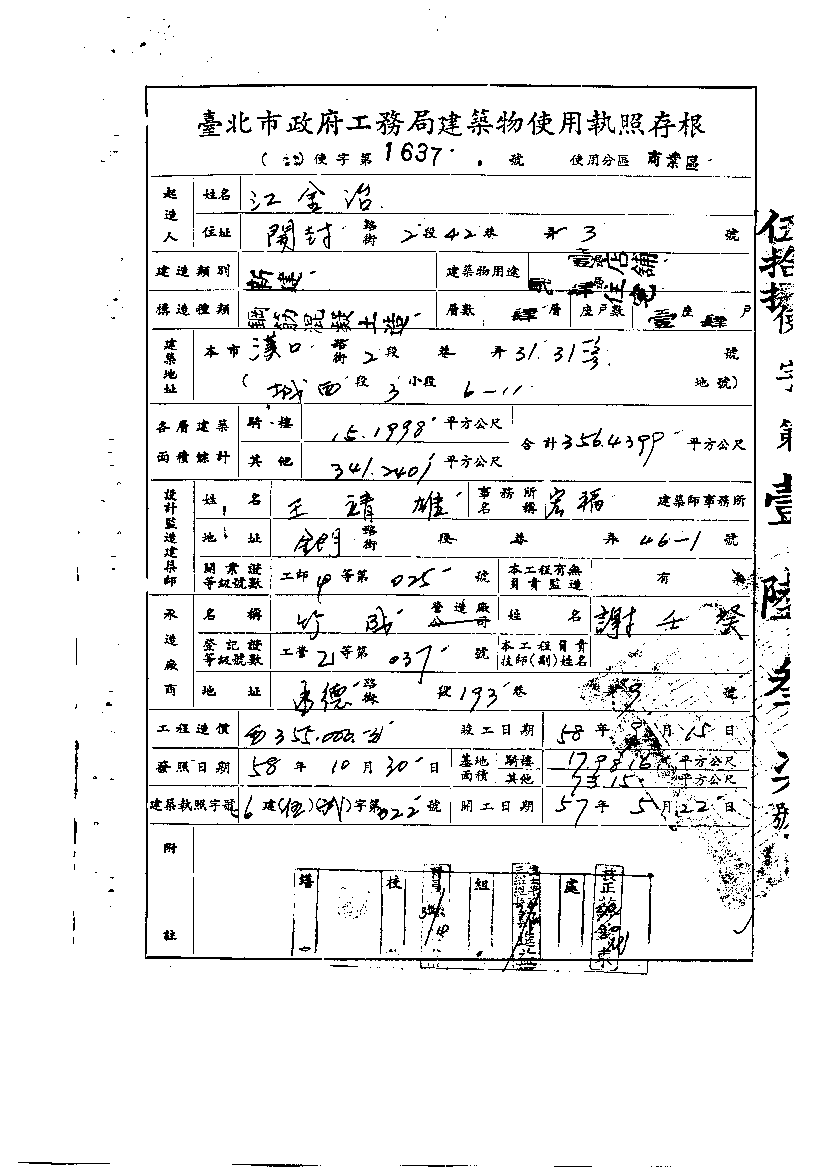 臺北市政府工務局建築物使用執照存根
使字第1637號 使用分區 商業區
起造人 姓名 江金治
住址 開封 路街 2段42巷 弄3 號
建造類別 新建 建築物用途 店舖 住宅
構造種類 鋼筋混凝土造 層數 肆層 座戶數 壹座肆戶
建築地址 本市漢口 路街 2段 巷 弄31.31 號
(城西段3小段 6-11 地號)
各層建築面積總計 騎樓 15.1998平方公尺 合計356.4399平方公尺
其他 341.2401平方公尺
設計監造建築師 姓名 王靖雄 事務所名稱 宏福 建築師事務所
地址 金門 路街 段 巷 弄46-1號
開業證等級號數 工師甲等第025號 本工程有無負責監造 有 無
承造廠商 名稱 竹 營造廠公司 姓名 謝壬癸
登記證等級號數 工營乙等第037號 本工程負責技師(副)姓名
地址 德 路街 段193巷 弄9 號
工程造價 355.000.元 竣工日期 58年9月15日
發照日期 58年10月30日 基地面積 騎樓 17.9816平方公尺
其他 平方公尺
建築執照字號 字第022號 開工日期 57年5月22日
附註
技 組 處
伍拾捌使字第壹陸參 號